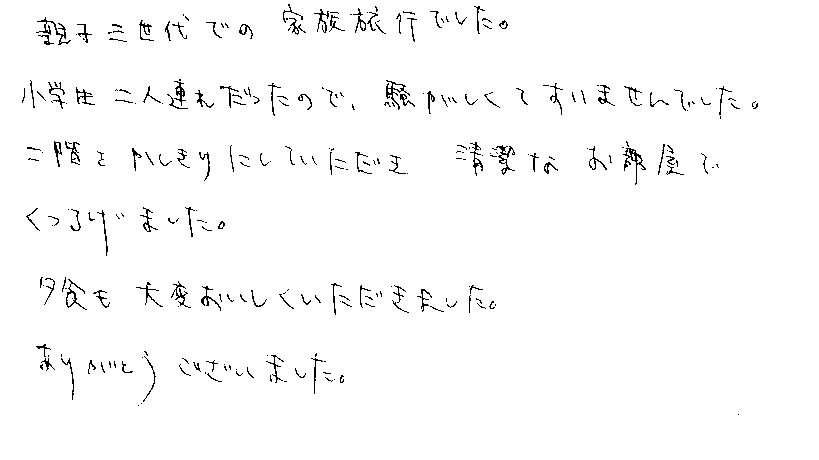 親子三世代での家族旅行でした。
小学生二人連れだったので、騒がしくてすいませんでした。
二階をかしきりにしていただき 清潔なお部屋で
くつろげました。
夕食も大変おいしくいただきました。
ありがとうございました。